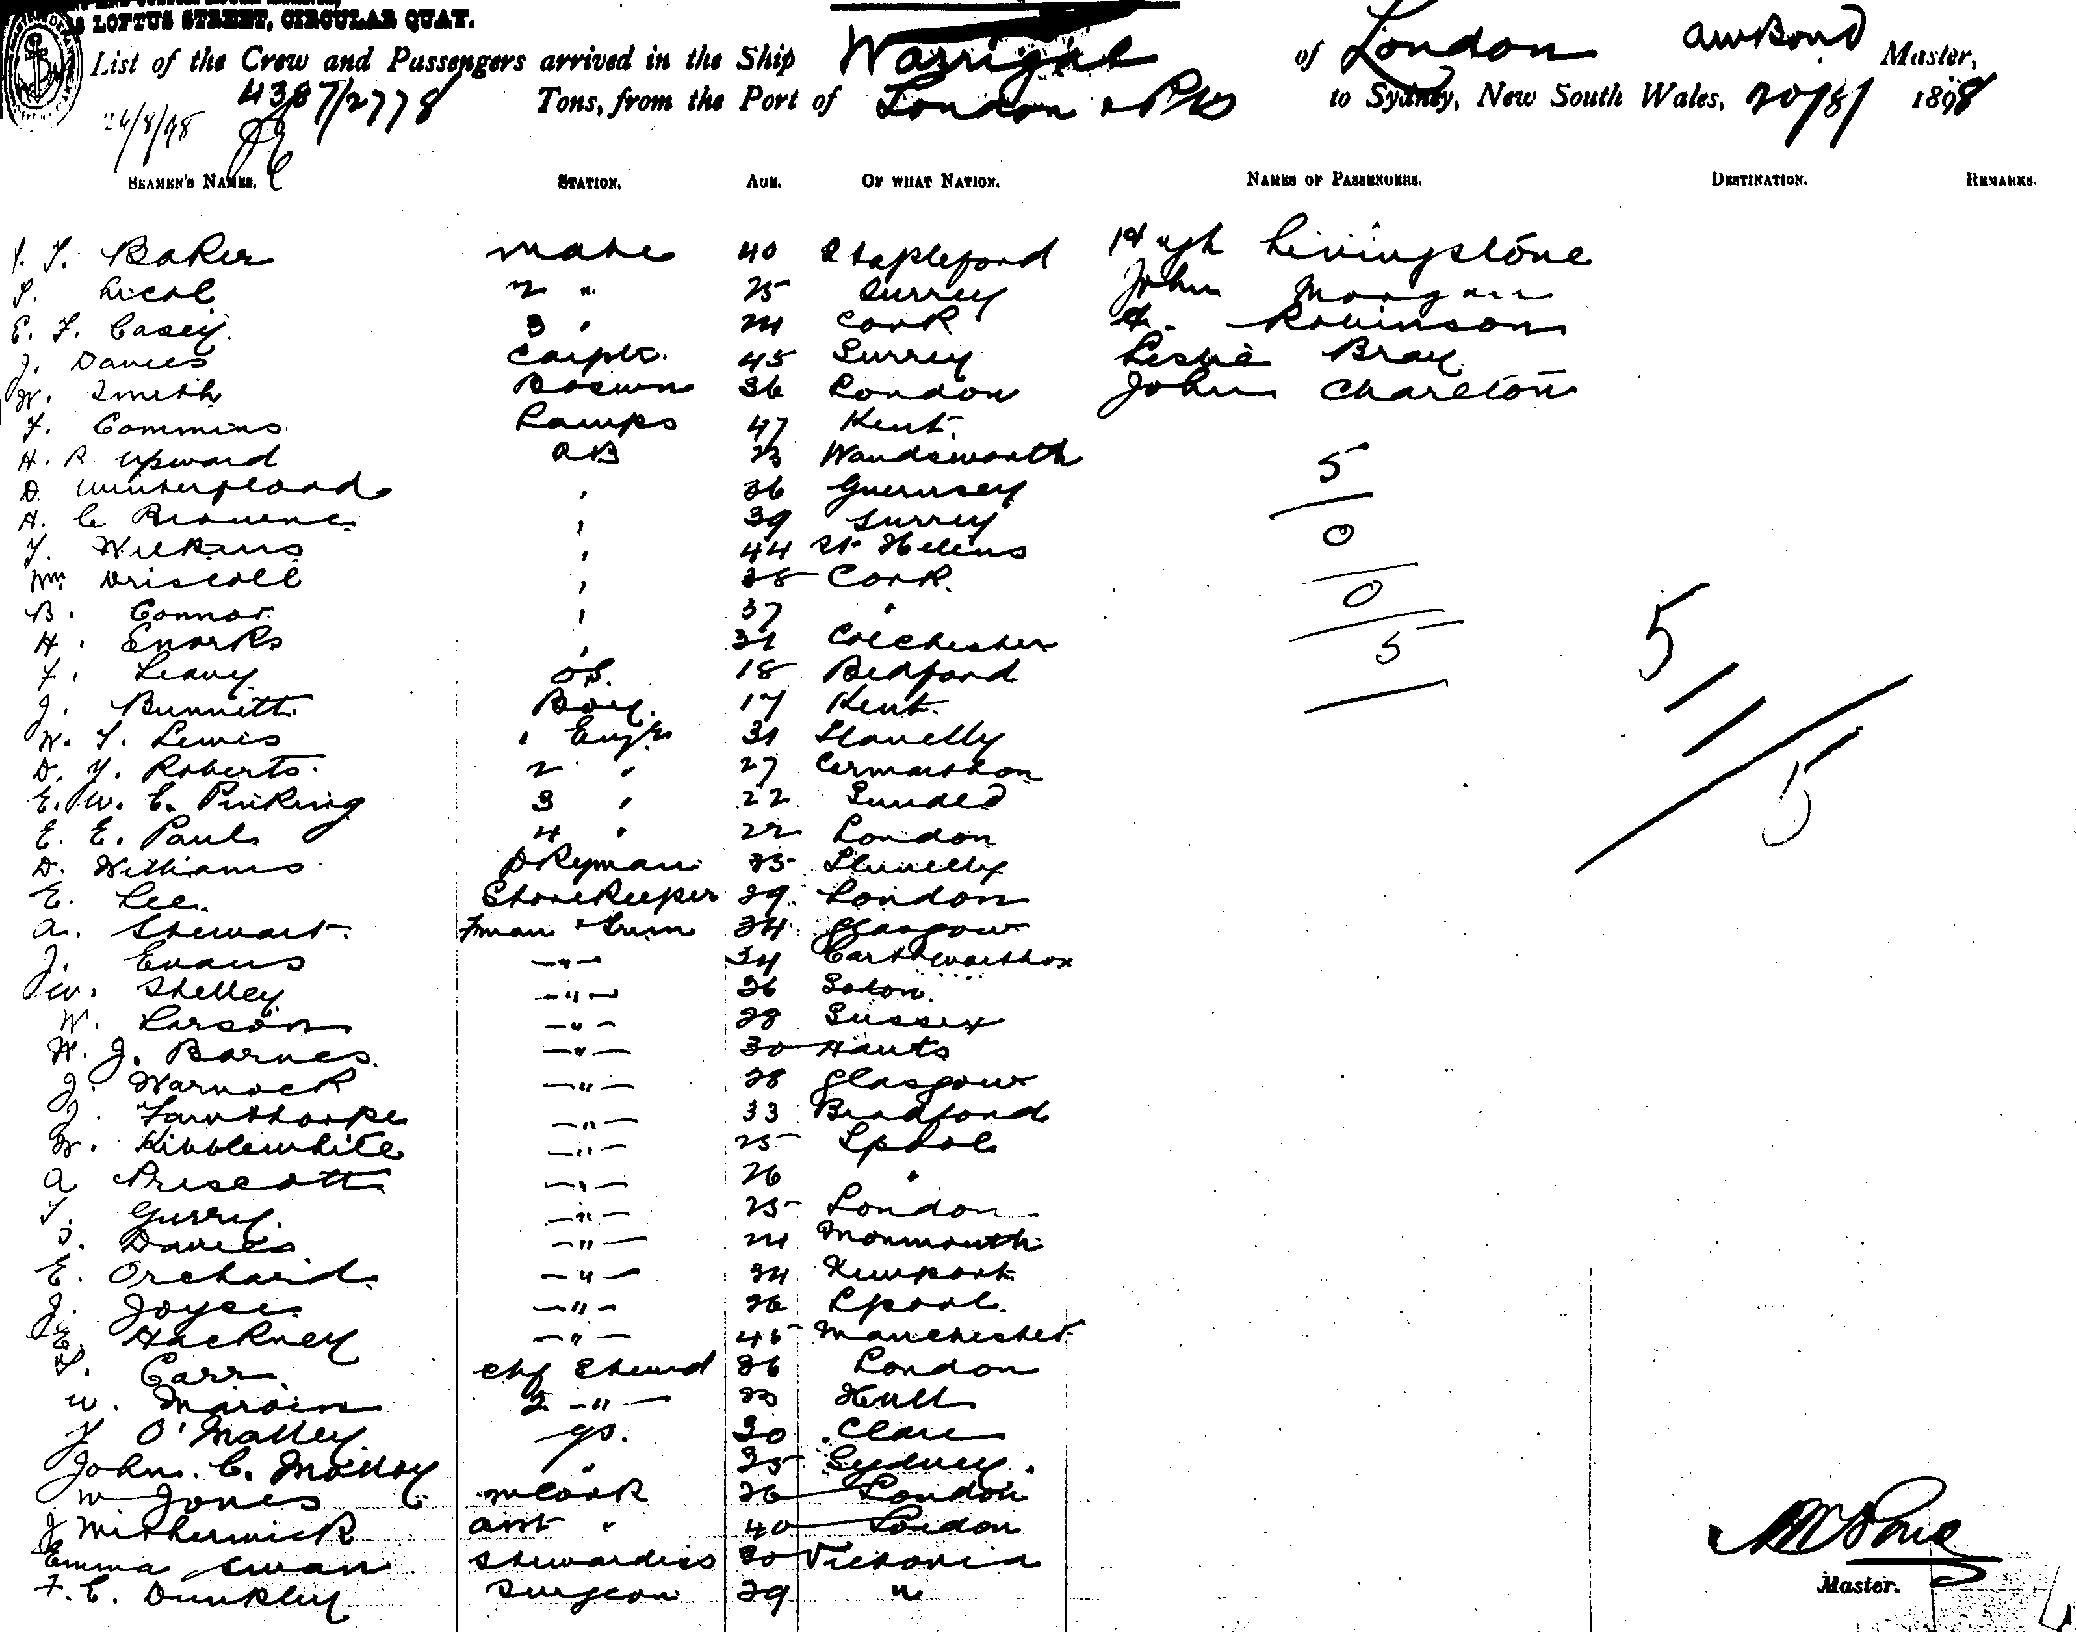 LOFTUS STREET, CIRCULAR QUAY.
List of the Crew and Passengers arrived in the Ship Warrigal of London AWBond Master,
4387/2778 Tons, from the Port of London & Pts to Sydney, New South Wales, 20/8/ 1898
26/8/98
SEAMEN'S NAMES. STATION. AGE. OF WHAT NATION. NAMES OF PASSENGERS. DESTINATION. REMARKS.
Baker mate 40 Stapleford Hugh Livingstone
2 " 25 Surrey John Morgan
E. F. Casey 3 " 24 Cork Robinson
J. Davies Carptr. 45 Surrey Leslie Bray
W. Smith Boswn 36 London John Charleton
Commins Lamps 47 Kent.
H. R. Upward AB 23 Wandsworth 5
D. 36 Guernsey
H. C. Browne 39 Surrey 0
Wilkins 44 St Helens
Wm Driscoll 28 Cork. 0
B. Connor 37 "
H. Enorks 31 Colchester 5
Leavy OS. 18 Bedford 5
J. Bunnett Boy. 17 Kent.
W. T. Lewis 1 Engr 31 Llanelly
D. Y. Roberts 2 " 27 Carmarthen 5
E. W. C. Pinking 3 " 22 Sunded
E. E. Paul 4 " 22 London
D. Williams Dkyman 25 Llanelly
E. Lee. Storekeeper 29 London
A. Stewart. Fman & Trim 34 Glasgow
J. Evans —"— 34
W. Shelley —"— 36 Soton.
W. Larson —"— 28 Sussex
W. J. Barnes —"— 30 Hants
J. Warnock —"— 28 Glasgow
J. Fawthorpe —"— 33 Bradford
W. Kibblewhite —"— 25 Lpool
A Priscott —"— 26 "
T. Gurry —"— 25 London
Davies —"— 24 Monmouth
E. Orchard —"— 24 Newport
J. Joyce —"— 26 Lpool.
E. Hackney —"— 45 Manchester
Carr Chf Stewd 26 London
W. Marvin 2 —"— 23 Hull
O'Malley GS. 30 Clare
John. C. Molloy " 25 Sydney.
W Jones mCook 26 London
J McShermick asst " 40 London
Emma Swan Stewardess 30 Victoria
F. C. Dunkley Surgeon 29 "
AWBond
Master.